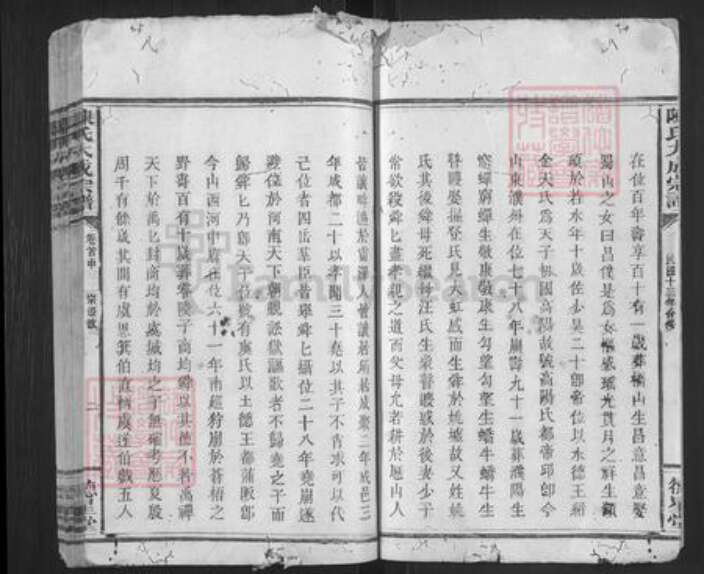 在位百年壽享百十有一歲葬橋山生昌意昌意娶
蜀山之女曰昌僕是爲女樞感瑤光貫月之祥生顓
頊於若水年十歲佐少昊二十卽帝位以水德王紹
金天氏爲天子初國高陽故號高陽氏都帝邱卽今
山東濮州在位七十八年崩壽九十一歲葬濮陽生
窮蟬窮蟬生敬康敬康生勾望勾望生蟜牛蟜牛生
瞽瞍娶握登氏見大虹感而生舜於姚墟故又姓姚
氏其後舜母死繼母汪氏生象瞽瞍惑於後妻少子
常欲殺舜舜盡孝親之道而父母允若耕於歷山人
皆讓畔漁於雷澤人皆讓居所居成聚二年成邑三
年成都二十以孝聞三十堯以其子不肖求可以代
己位者四岳羣臣皆舉舜舜攝位二十八年堯崩遂
避位於河南天下朝覲訟獄謳歌者不歸堯之子而
歸舜舜乃卽天子位號有虞氏以土德王都蒲阪卽
今山西河中府在位六十一年南巡狩崩於蒼梧之
野壽百有十歲葬零陵子商均舜以其德不若禹禪
天下於禹禹封商均於虞城均之子無確考歷夏殷
周千有餘歲其間有虞思箕伯直柄虞遂伯戲五人
陳氏大成宗譜
卷首中
二